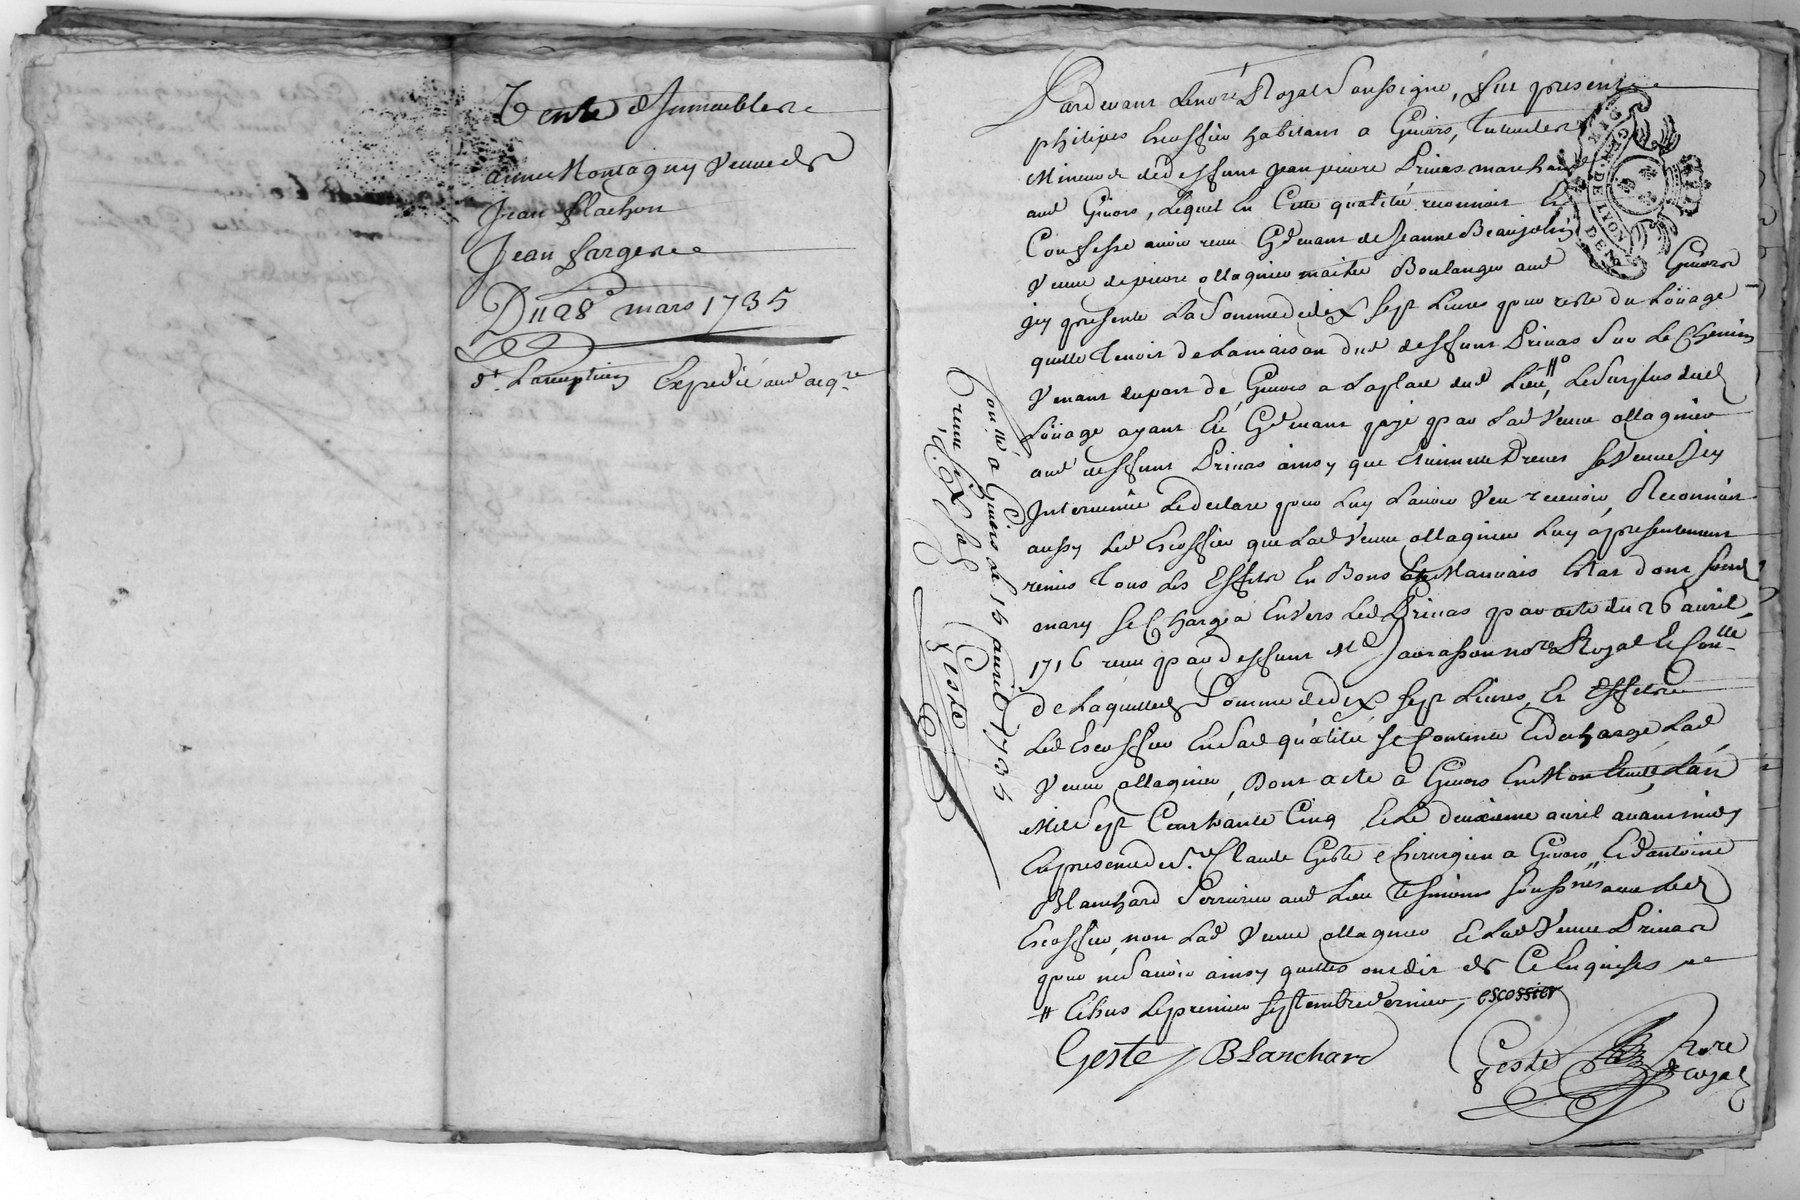 Vente d'Immeubles
anne Montagny veuve de
Jean flachon
Jean fargere
Du 28e mars 1735
Expedié aud acqr
Pardevant Le nore Royal Soussigné, fut present
philipes Escoffier habitant a Givors, Tuteur des
Mineurs de deffunt Jean pierre Privas marchand
aud Givors, Lequel En Cette qualitée reconnoit Et
Confesse avoir receu Cy devant de Jeanne Beaujolin
Veuve de pierre allagnier maitre Boulanger aud Givors
icy presente La Somme de dix Sept Livres pour reste du Loüage
quelle Tenoit de La maison dud deffunt Privas Sur Le Chemin
Venant du port de Givors a La place dud Lieu, # Le Surplus dud
Loüage ayant Eté Cy devant payé par Lad Veuve allagnier
aud deffunt Privas ainsy que Sa Veuve icy
Intervenüe Le declare pour Luy L'avoir Veu recevoir, Reconnoit
aussy Led Escoffier que Lad Veuve allagnier Luy a presentement
remis Tous Les Effets En Bons Et Mauvais Etat dont Sond
mary Se Chargea Envers Led Privas par acte du 26 avril
1716 receu par deffunt Me Javrasson nore Royal Et Conllé
De Laquelle Somme de dix Sept Livres, Et Effets
Led Escoffier En Sad qualitée Se Contente Et decharge Lad
Veuve allagnier, Dont acte a Givors En Mon Etude, L'an
Mil Sept Cent trante Cinq Et Le deuxieme avril avant midy
En presence de Sr Claude Geste Chirurgien a Givors, Et d'antoine
Blanchard Serrurier aud Lieu Tesmoins Soussnés avec Led
Escoffier, non Lad Veuve allagnier Et Lad Veuve Privas
pour ne Savoir ainsy quelles ont dit de Ce Enquises
# Echus Le premier Septembre dernier, escossier
Geste Blanchard
Geste Nore
Royal
Conllé a Givors Le 15 avril 1735
receu Six Sols
Geste
GEN. DE LYON